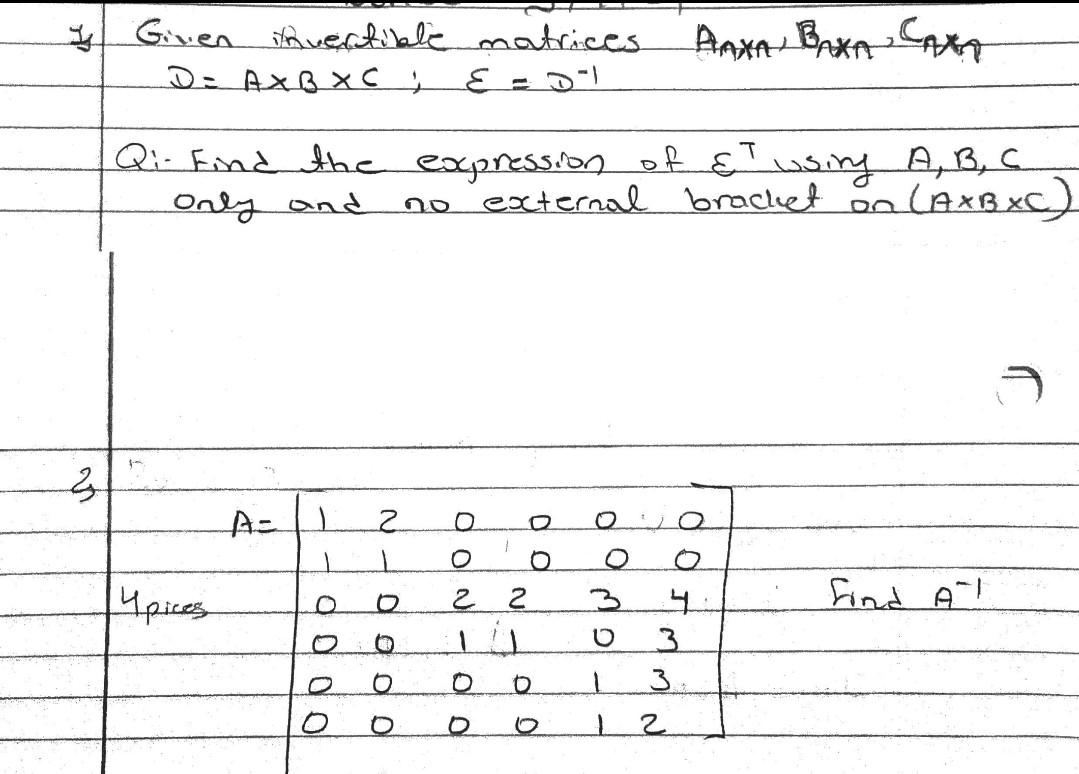 1, Given invertible matrices Anxn, Bnxn, Cnxn
D = A×B×C ; E = D⁻¹
Q:- Find the expression of Eᵀ using A, B, C
only and no external bracket on (A×B×C)
2,
A= 1 2 0 0 0 0
1 1 0 0 0 0
4 pices 0 0 2 2 3 4 Find A⁻¹
0 0 1 1 0 3
0 0 0 0 1 3
0 0 0 0 1 2